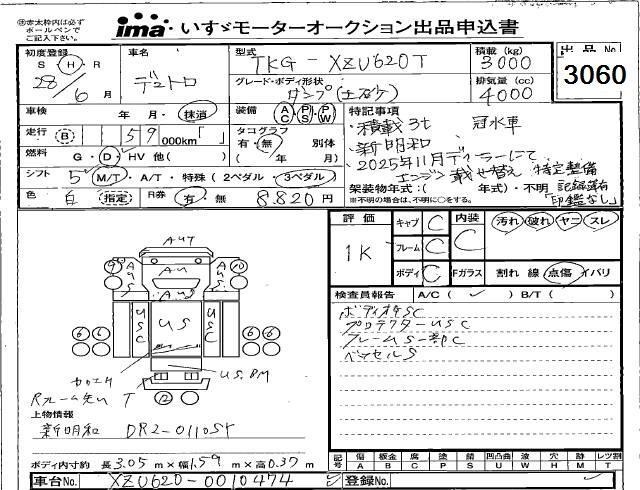 ㊟赤太枠内は必ず
ボールペンで
ご記入下さい。
ima いすゞモーターオークション出品申込書
初度登録 S H R 28/6月
車名 デュトロ
型式 TKG-XZU620T
積載(kg) 3000
出品No 3060
グレード・ボディ形状 ダンプ(土砂ケ)
排気量(cc) 4000
車検 年・月・抹消
装備 AC PS PW
特記事項
・積載3t 冠水車
・新明和
・2025年11月ディーラーにて
エンジン載せ替え 特定整備
記録簿有
「印鑑なし」
走行 B 59 000km「 」
タコグラフ 有・無 別体 ( 年 月)
燃料 G・D・HV 他( )
シフト 5 M/T・A/T・特殊(2ペダル・3ペダル)
架装物年式:( 年式)・不明
※不明の場合は、不明に○をする。
色 白 指定 R券 有・無 8.820円
評価 1K
キャブ C
フレーム C
ボディ C
内装 C
汚れ 破れ ヤニ スレ
Fガラス 割れ 線 点傷 イバリ
検査員報告 A/C( ✓ ) B/T( )
ボディオキSC
プロテクターUSC
フレームS一部C
ベッセルS
AUT
AU
AU
AUS
AUS
9
10
USC
US
USC
6 6
6 6
カロエリ
US.BM
Rフレーム先い T
12
上物情報
新明和 DR2-01105Y
ボディ内寸約 長3.05m×幅1.59m×高0.37m
車台No. XZU620-0010474
登録No.
記号 傷A 板金B 腐C 塗P 錆S 凹凸曲U 波W 穴H 跡M レツ割T